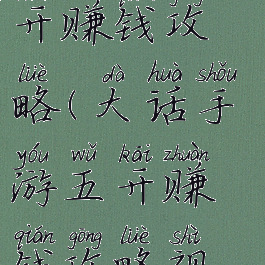 开赚钱攻
lüè dà huà shǒu
略(大话手
yóu wǔ kāi zhuàn
游五开赚
qián gōng lüè shì
钱攻略视